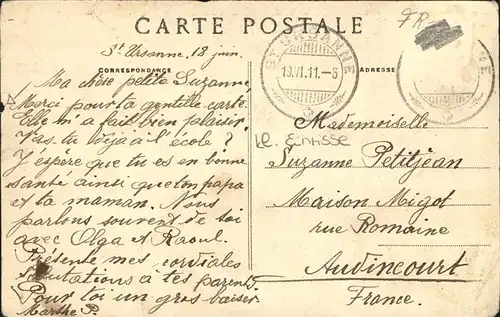 CARTE POSTALE
CORRESPONDANCE
ADRESSE
St Ursanne, 18 juin.
Ma chère petite Suzanne,
Merci pour ta gentille carte.
Elle m'a fait bien plaisir.
Vas-tu déjà à l'école ?
J'espère que tu es en bonne
santé ainsi que ton papa
et ta maman. Nous
parlons souvent de toi
avec Olga et Raoul.
Présente mes cordiales
salutations à tes parents.
Pour toi un gros baiser
Marthe P.
ST. URSANNE
19.VI.11.-6
FR
Mademoiselle
Suzanne Petitjean
Maison Migot
rue Romaine
Audincourt
France.